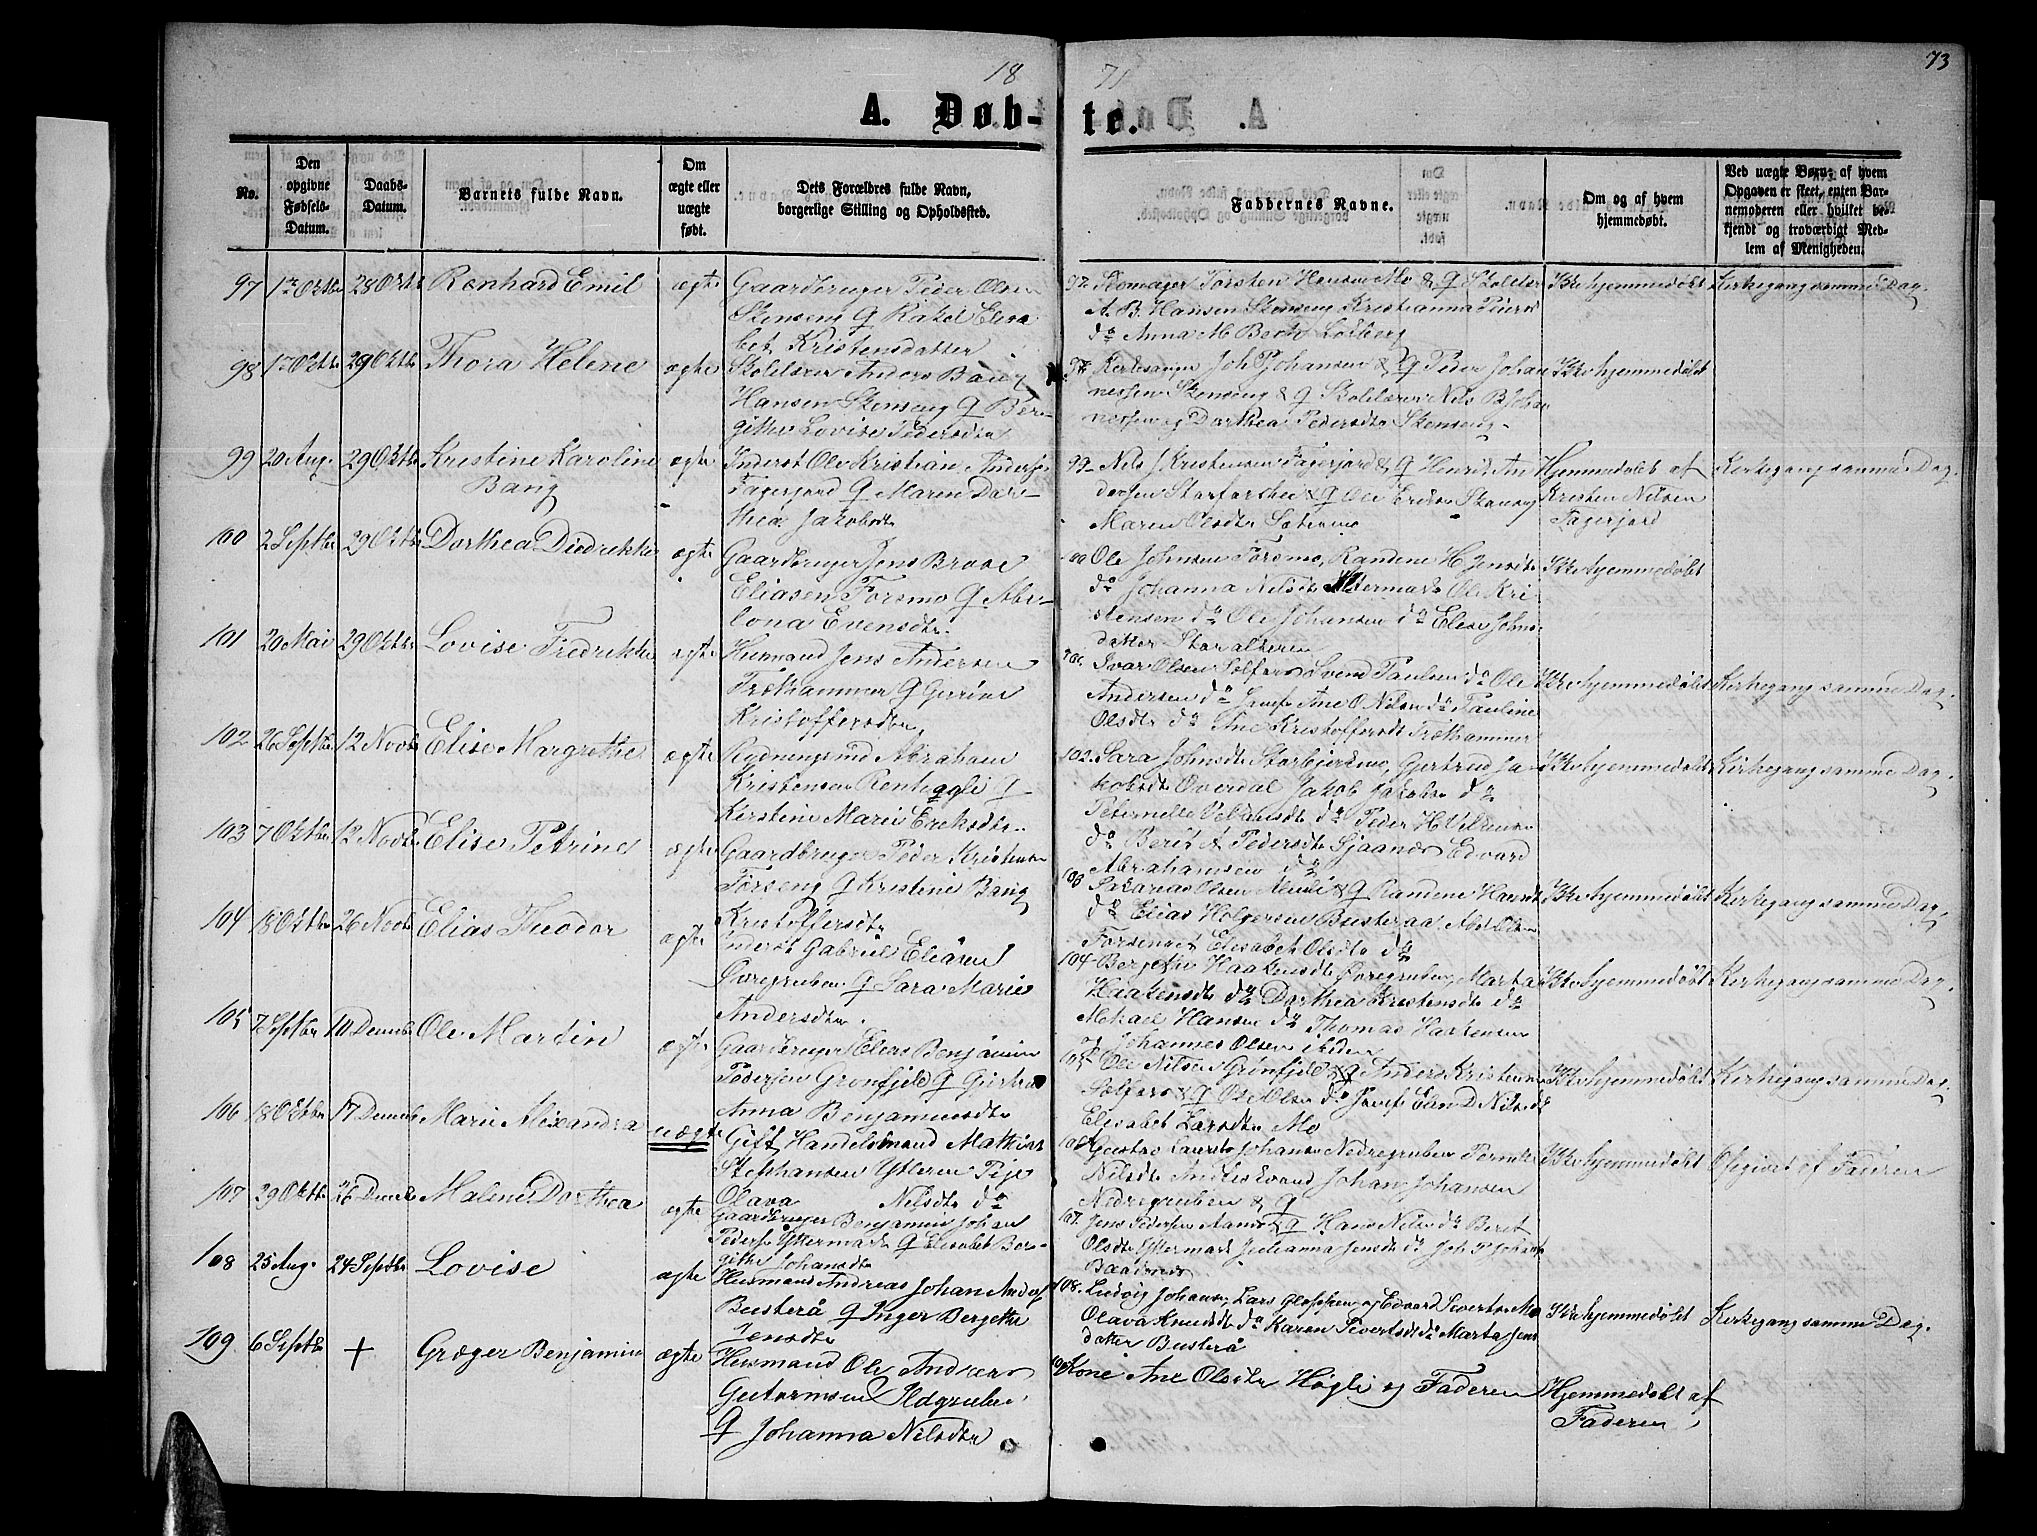 18 71
73
A. Døb-te.
No.
Den opgivne Fødsels-Datum.
Daabs-Datum.
Barnets fulde Navn.
Om ægte eller uægte født.
Dets Forældres fulde Navn, borgerlige Stilling og Opholdssted.
Faddernes Navne.
Om og af hvem hjemmedøbt.
Ved uægte Børn: af hvem Opgaven er skeet, enten Barnemoderen eller hvilket bekjendt og troværdigt Medlem af Menigheden.
97 28 Oktb Renhard Emil ægte Gaardbruger Peder Olsen
Skonseng & Rakel Elisa
bet Kristensdatter
97. Skomager Torsten Hansen Mo & Q Skolelær
A. B. Hansen Skonseng Kristianna
do Anna M
Ikke hjemmedøbt Kirkegang samme Dag.
98 17 Oktb 29 Oktb Thora Helene ægte Skolelærer Anders Bang
Hansen Skonseng Q Ber-
githe Lovise Pedersdtr
Kirkesanger Joh P Johansen & Q Peder Johan
nessen Skonseng & Q Skolelærer Nils B Joha
nessen og Dorthea Pedersdtr Skonseng
Ikke hjemmedøbt
99 20 Aug. 29 Oktb Kristine Karoline
Bang ægte Inderst Ole Kristian Anders
Fagerjord Q Maren Dor-
thea Jakobsdtr
99. Nils J Kristensen Fagerjord & Q Henrik An
dersen Storforshei & Q Ole Eriks
Maren Olsdtr
Hjemmedøbt af
Kristen Nilsen
Fagerjord
Kirkegang samme Dag.
100 2 Septbr 29 Oktb Dorthea Diedrikke ægte Gaardbruger Jens Brose
Eliasen Forsmo Q Abe-
lona Evensdtr.
100 Ole Johnsen Forsmo, Randine H Jensdtr
do Johanna Nilsdtr Yttermark Ole Kri
stensen do Ole Johansen do Elise Johns
datter Storalteren
Ikke hjemmedøbt
101 20 Mai 29 Oktb Lovise Fredrikke ægte Husmand Jens Andersen
Træthammer Q
Kristoffersdtr
101. Ivar Olsen Selfors Svend Paulsen do Ole
Andersen do Jomfr Ane O Nilsen do Pauline
Olsdtr do Ane Kristoffersdtr Træthammer
Ikke hjemmedøbt Kirkegang samme Dag.
102 26 Septbr 12 Novbr Elise Margrethe ægte Rydningsmd Abraham
Kristensen Renhagli Q
Kerstine Marie Eriksdtr
102. Sara Johnsdtr Storbjerkmo, Gertrud Ja
kobsdtr Overdal Jakob Jakobs do
Peternelle Veltensdtr do Peder H Velten
do Berit A Pedersdtr Sjaanes Edvard
Abrahamsen do
Ikke hjemmedøbt Kirkegang samme Dag.
103 7 Oktbr 12 Novb Elise Petrine ægte Gaardbruger Peder Kristensen
Q Kristine Bang
Kristoffersdtr
103 Sakarias Olsen & Q Randine Hansdtr
do Elias Holgersen Busteraa
Elisabet Olsdtr do
Ikke hjemmedøbt Kirkegang samme Dag.
104 18 Oktbr 26 Novbr Elias Theodor ægte Inderst Gabriel Eliasen
Øvregruben Q Sara Marie
Andersdtr.
104 Bergethe Haakensdtr Øvregruben, Marta
Haakensdtr do Dorthea Kristensdtr do
Mekael Hansen do Thomas
og Johannes Olsen
Ikke hjemmedøbt Kirkegang samme Dag.
105 7 Septbr 10 Decmb Ole Martin ægte Gaardbruger Elias Benjamin
Pedersen Grønfjeld Q
Anna Benjaminsdtr
105 Ole Nilsen Grønfjeld & Q Anders Kristensen
Selfors & Q Ole Olsen do Jomfr D Nilsdtr
Elisabet Larsdtr Mo
Ikke hjemmedøbt Kirkegang samme Dag.
106 18 Oktbr 17 Decmb Marie Alexandra uægte Gift Handelsmand Mathias
Stephansen Ytteren Pige
Olava Nilsdtr do
106 Gustav Laurits Johansen Nedregruben
Nilsdtr Johan Johansen
Nedregruben & Q
Ikke hjemmedøbt Opgivet af Faderen
107 29 Oktbr 26 Decmb Malene Dorthea ægte Gaardbruger Benjamin Johan
Peders Yttermark Q Elisabet Ber-
githe Johansdtr
107. Jens Pedersen & Q Hans Nilsen do Beret
Olsdtr Yttermark Julianna Jensdtr do Joh P Johans
108 25 Aug. 24 Septbr Lovise ægte Husmand Andreas Johan And
Busterå Q Inger Bergethe
Jensdtr
108. Ludvig Johansen, Lars og Edvard Sivertsen Mo
Olava Knudsdtr do Karen Sivertsdtr do Marta Jens
datter Busterå
Ikke hjemmedøbt Kirkegang samme Dag.
109 6 Septbr + Græger Benjamin ægte Husmand Ole Andreas
Guttormsen Ildgruben
Q Johanna Nilsdtr
109 Kone Ane Olsdtr Høgli og Faderen
Hjemmedøbt af
Faderen